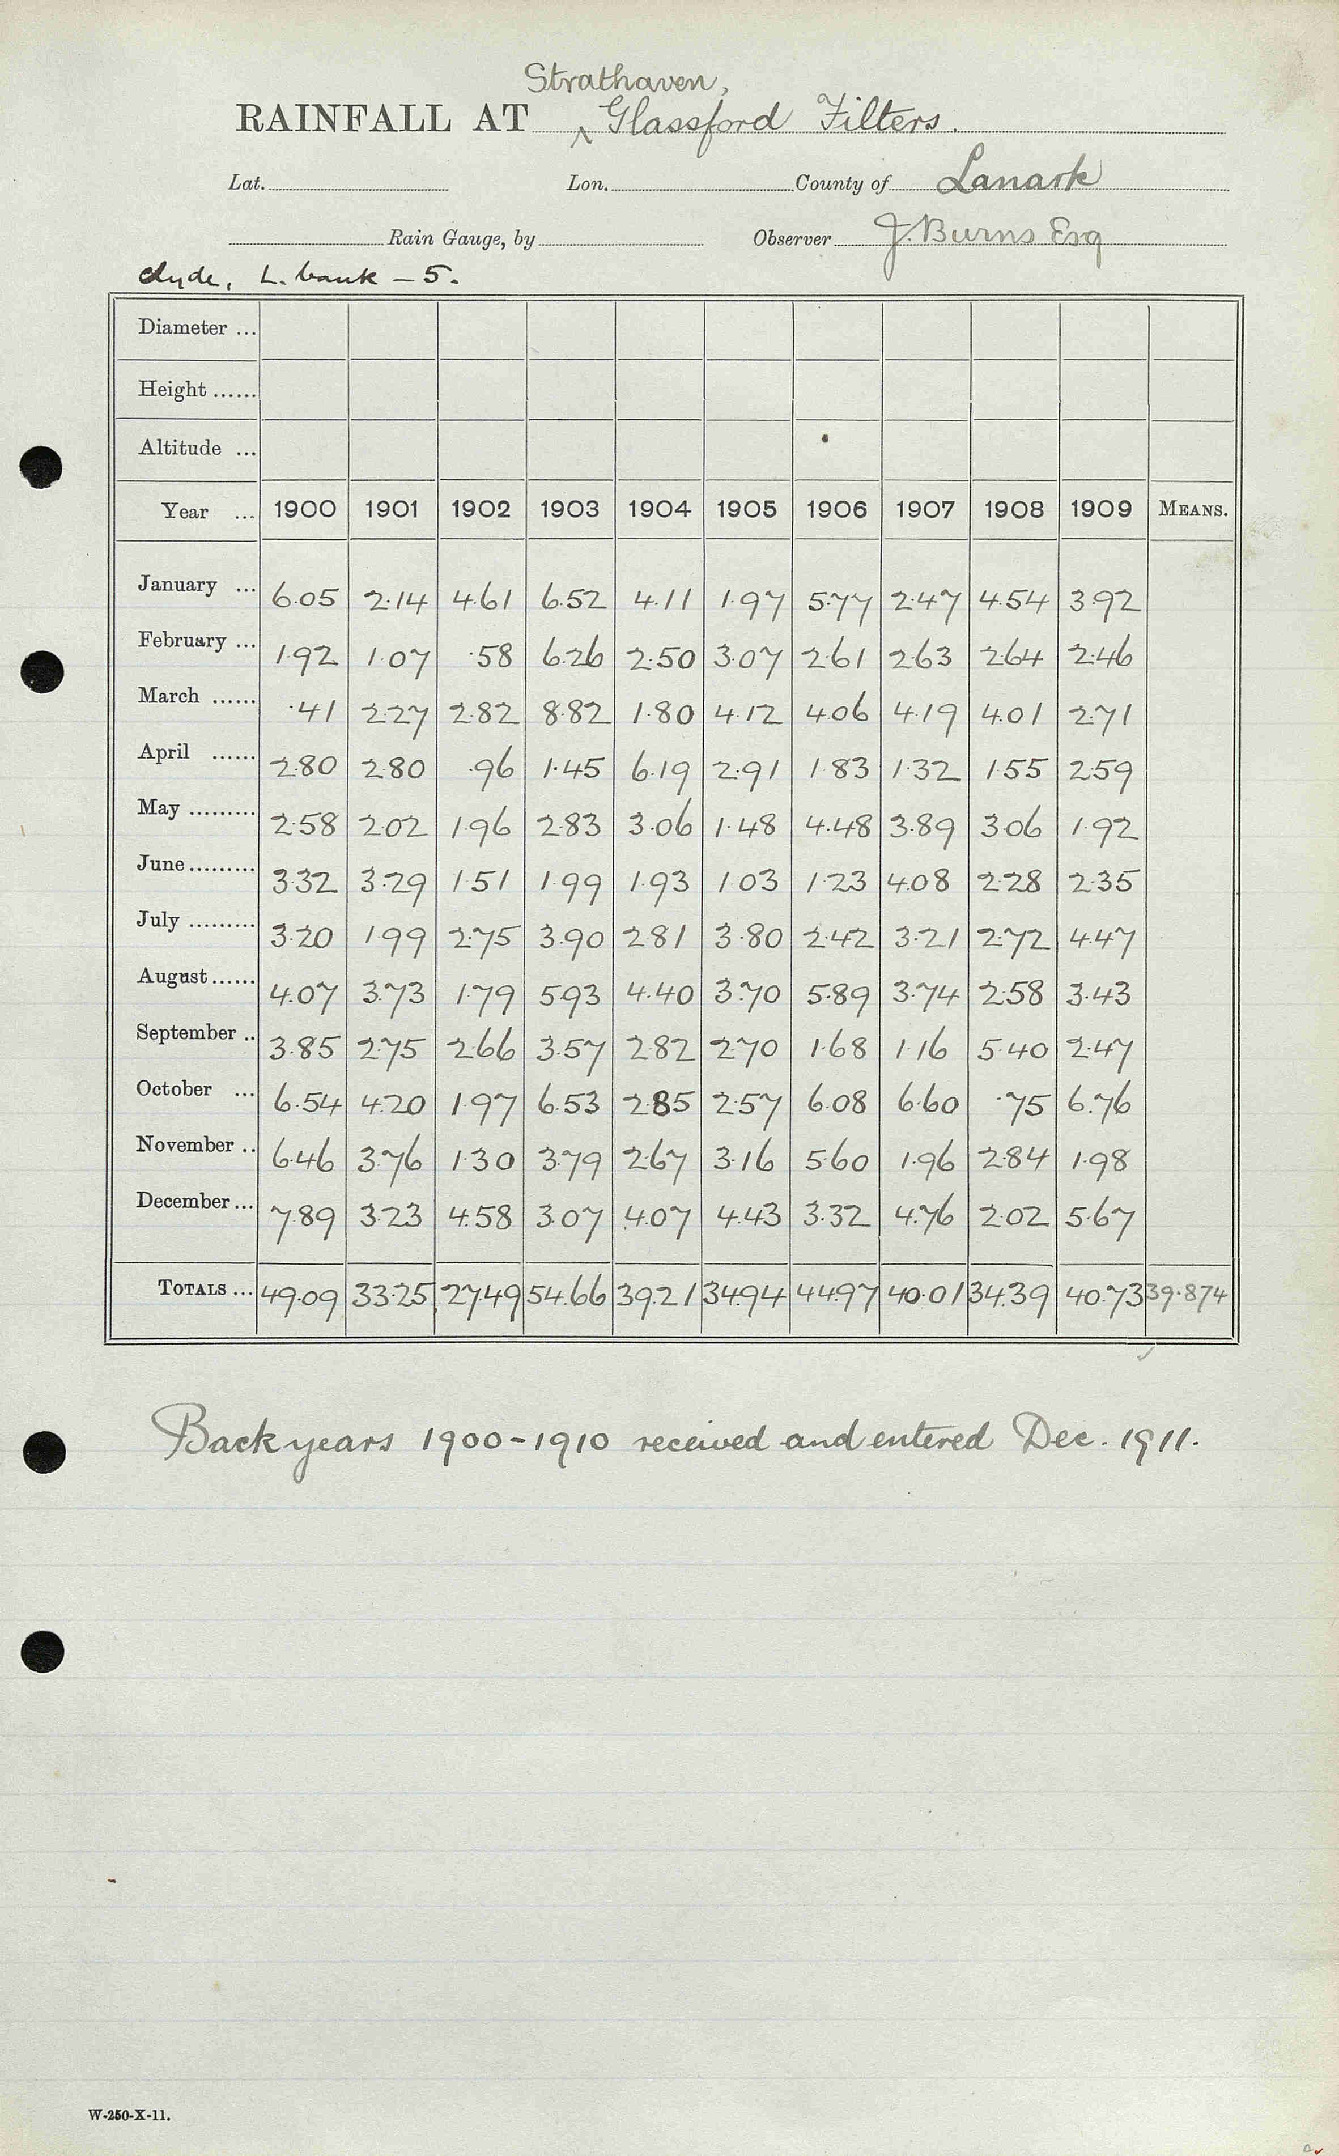 Strathaven,
RAINFALL AT ^ Glassford Filters.
Lat. Lon. County of Lanark
Rain Gauge, by Observer J. Burns Esq
Clyde, L. bank – 5.
Diameter ...
Height ......
Altitude ...
Year ... 1900 1901 1902 1903 1904 1905 1906 1907 1908 1909 MEANS.
January ... 6.05 2.14 4.61 6.52 4.11 1.97 5.77 2.47 4.54 3.92
February ... 1.92 1.07 .58 6.26 2.50 3.07 2.61 2.63 2.64 2.46
March ...... .41 2.27 2.82 8.82 1.80 4.12 4.06 4.19 4.01 2.71
April ...... 2.80 2.80 .96 1.45 6.19 2.91 1.83 1.32 1.55 2.59
May ......... 2.58 2.02 1.96 2.83 3.06 1.48 4.48 3.89 3.06 1.92
June ......... 3.32 3.29 1.51 1.99 1.93 1.03 1.23 4.08 2.28 2.35
July ......... 3.20 1.99 2.75 3.90 2.81 3.80 2.42 3.21 2.72 4.47
August ...... 4.07 3.73 1.79 5.93 4.40 3.70 5.89 3.74 2.58 3.43
September .. 3.85 2.75 2.66 3.57 2.82 2.70 1.68 1.16 5.40 2.47
October ... 6.54 4.20 1.97 6.53 2.85 2.57 6.08 6.60 .75 6.76
November .. 6.46 3.76 1.30 3.79 2.67 3.16 5.60 1.96 2.84 1.98
December ... 7.89 3.23 4.58 3.07 4.07 4.43 3.32 4.76 2.02 5.67
TOTALS ... 49.09 33.25 27.49 54.66 39.21 34.94 44.97 40.01 34.39 40.73 39.874
Back years 1900-1910 received and entered Dec. 1911.
W-250-X-11.